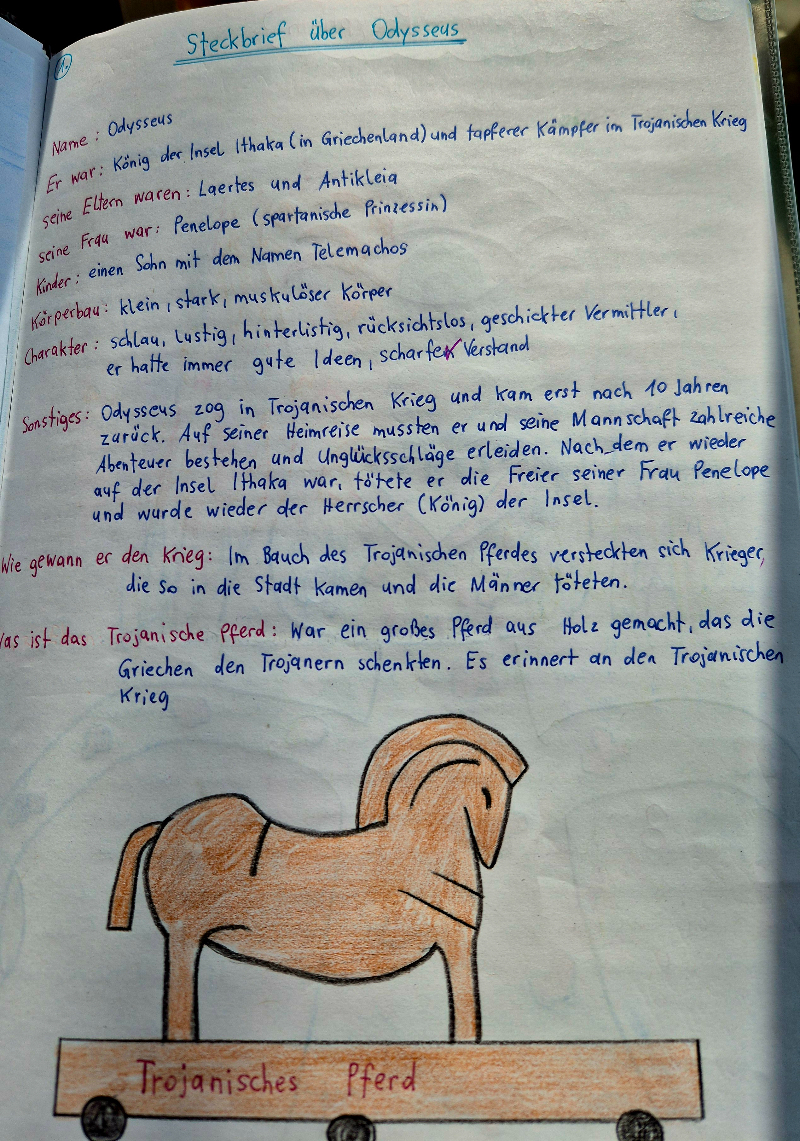 1.
Steckbrief über Odysseus
Name: Odysseus
Er war: König der Insel Ithaka (in Griechenland) und tapferer Kämpfer im Trojanischen Krieg
seine Eltern waren: Laertes und Antikleia
seine Frau war: Penelope (spartanische Prinzessin)
Kinder: einen Sohn mit dem Namen Telemachos
Körperbau: klein, stark, muskulöser Körper
Charakter: schlau, lustig, hinterlistig, rücksichtslos, geschickter Vermittler,
er hatte immer gute Ideen, scharfer Verstand
Sonstiges: Odysseus zog in Trojanischen Krieg und kam erst nach 10 Jahren
zurück. Auf seiner Heimreise mussten er und seine Mannschaft zahlreiche
Abenteuer bestehen und Unglücksschläge erleiden. Nach dem er wieder
auf der Insel Ithaka war, tötete er die Freier seiner Frau Penelope
und wurde wieder der Herrscher (König) der Insel.
Wie gewann er den Krieg: Im Bauch des Trojanischen Pferdes versteckten sich Krieger,
die so in die Stadt kamen und die Männer töteten.
Was ist das Trojanische Pferd: War ein großes Pferd aus Holz gemacht, das die
Griechen den Trojanern schenkten. Es erinnert an den Trojanischen
Krieg
Trojanisches Pferd